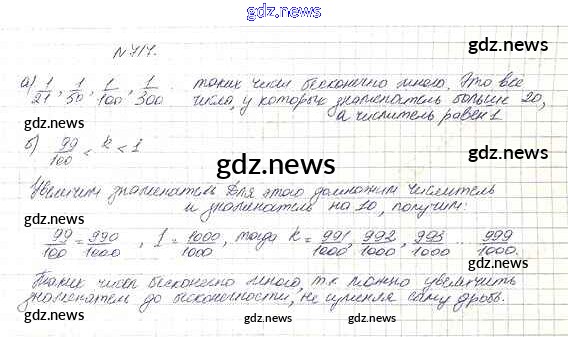 gdz.news
N 717.
gdz.news
а) 1/21, 1/50, 1/100, 1/300 таких чисел бесконечно много. Это все
числа, у которых знаменатель больше 20,
а числитель равен 1
б) 99/100 < k < 1
gdz.news
gdz.news
Увеличим знаменатель. Для этого домножим числитель
и знаменатель на 10, получим:
gdz.news
99/100 = 990/1000, 1 = 1000/1000, тогда k = 991/1000, 992/1000, 993/1000 ... 999/1000.
gdz.news
Таких чисел бесконечно много, т.к можно увеличить
знаменатель до бесконечности, не
саму дробь.
gdz.news
gdz.news
gdz.news